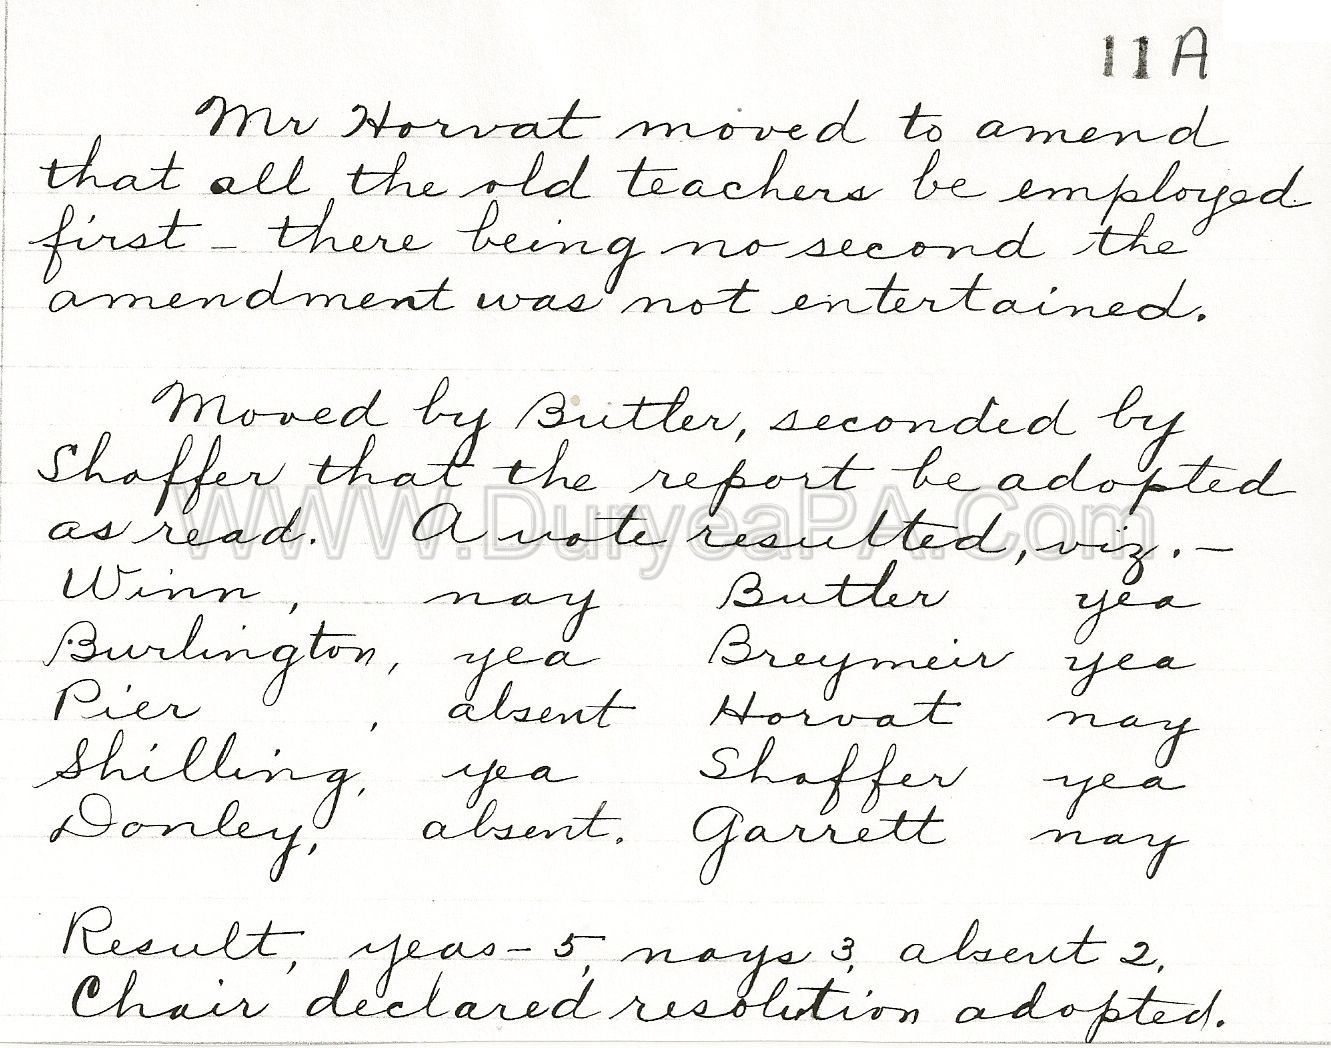 11A
Mr Horvat moved to amend
that all the old teachers be employed
first - there being no second the
amendment was not entertained.
Moved by Butler, seconded by
Shaffer that the report be adopted
as read. A vote resulted, viz. -
Winn, nay Butler yea
Burlington, yea Breymeir yea
Pier , absent Horvat nay
Shilling, yea Shaffer yea
Donley, absent. Garrett nay
Result, yeas - 5, nays 3, absent 2,
Chair declared resolution adopted.
WWW.DuryeaPA.Com